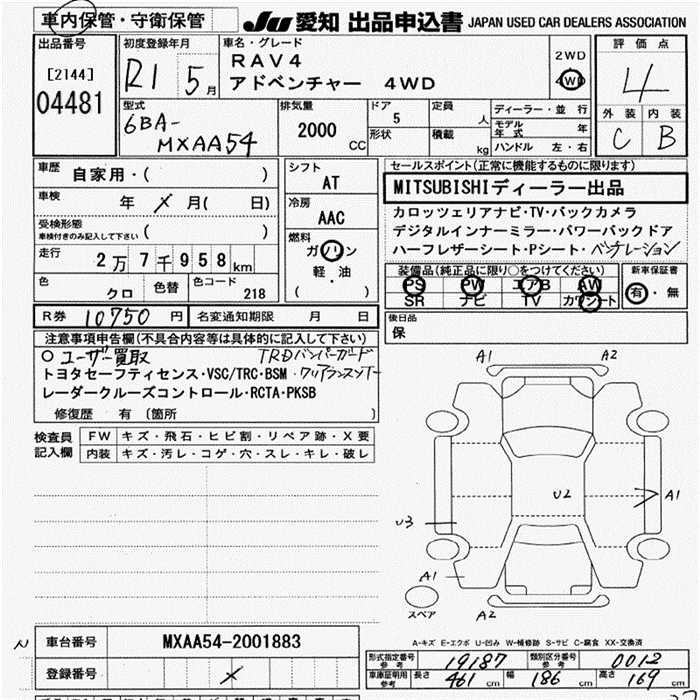 車内保管・守衛保管
JU 愛知 出品申込書 JAPAN USED CAR DEALERS ASSOCIATION
出品番号
[2144]
04481
初度登録年月
R1 5月
車名・グレード
RAV4
アドベンチャー 4WD
2WD
4WD
評価点
4
外装 内装
C B
型式
6BA-
MXAA54
排気量
2000 CC
ドア
5
定員
人
形状
積載
kg
ディーラー・並行
モデル年式 年
ハンドル 左・右
車歴
自家用・( )
車検
年 メ 月( 日)
受検形態
車検付きのみ記入して下さい ( )
走行
2万7千958km
色
クロ
色替
色コード
218
シフト
AT
冷房
AAC
燃料
ガソリン
軽・油
( )
セールスポイント(正常に機能するものに限ります)
MITSUBISHIディーラー出品
カロッツェリアナビ・TV・バックカメラ
デジタルインナーミラー・パワーバックドア
ハーフレザーシート・Pシート・ベンチレーション
装備品(純正品に限り○をつけてください)
PS PW エアB AW
SR ナビ TV カワシート
新車保証書
有・無
R券 10750円
名変通知期限 月 日
後日品
保
注意事項申告欄(不具合内容等は具体的に記入して下さい)
○ユーザー買取 TRDバンパーガード
トヨタセーフティセンス・VSC/TRC・BSM・クリアランスソナー
レーダークルーズコントロール・RCTA・PKSB
修復歴 有 〔箇所 〕
検査員記入欄
FW キズ・飛石・ヒビ割・リペア跡・X要
内装 キズ・汚レ・コゲ・穴・スレ・キレ・破レ
A1 A2
U2 A1
U3
A1
スペア
A2
A-キズ E-エクボ U-凹み W-補修跡 S-サビ C-腐食 XX-交換済
車台番号 MXAA54-2001883
登録番号 メ
型式指定番号 参考 19187
類別区分番号 参考 0012
車庫証明用 参考 長さ 461cm 幅 186cm 高さ 169cm